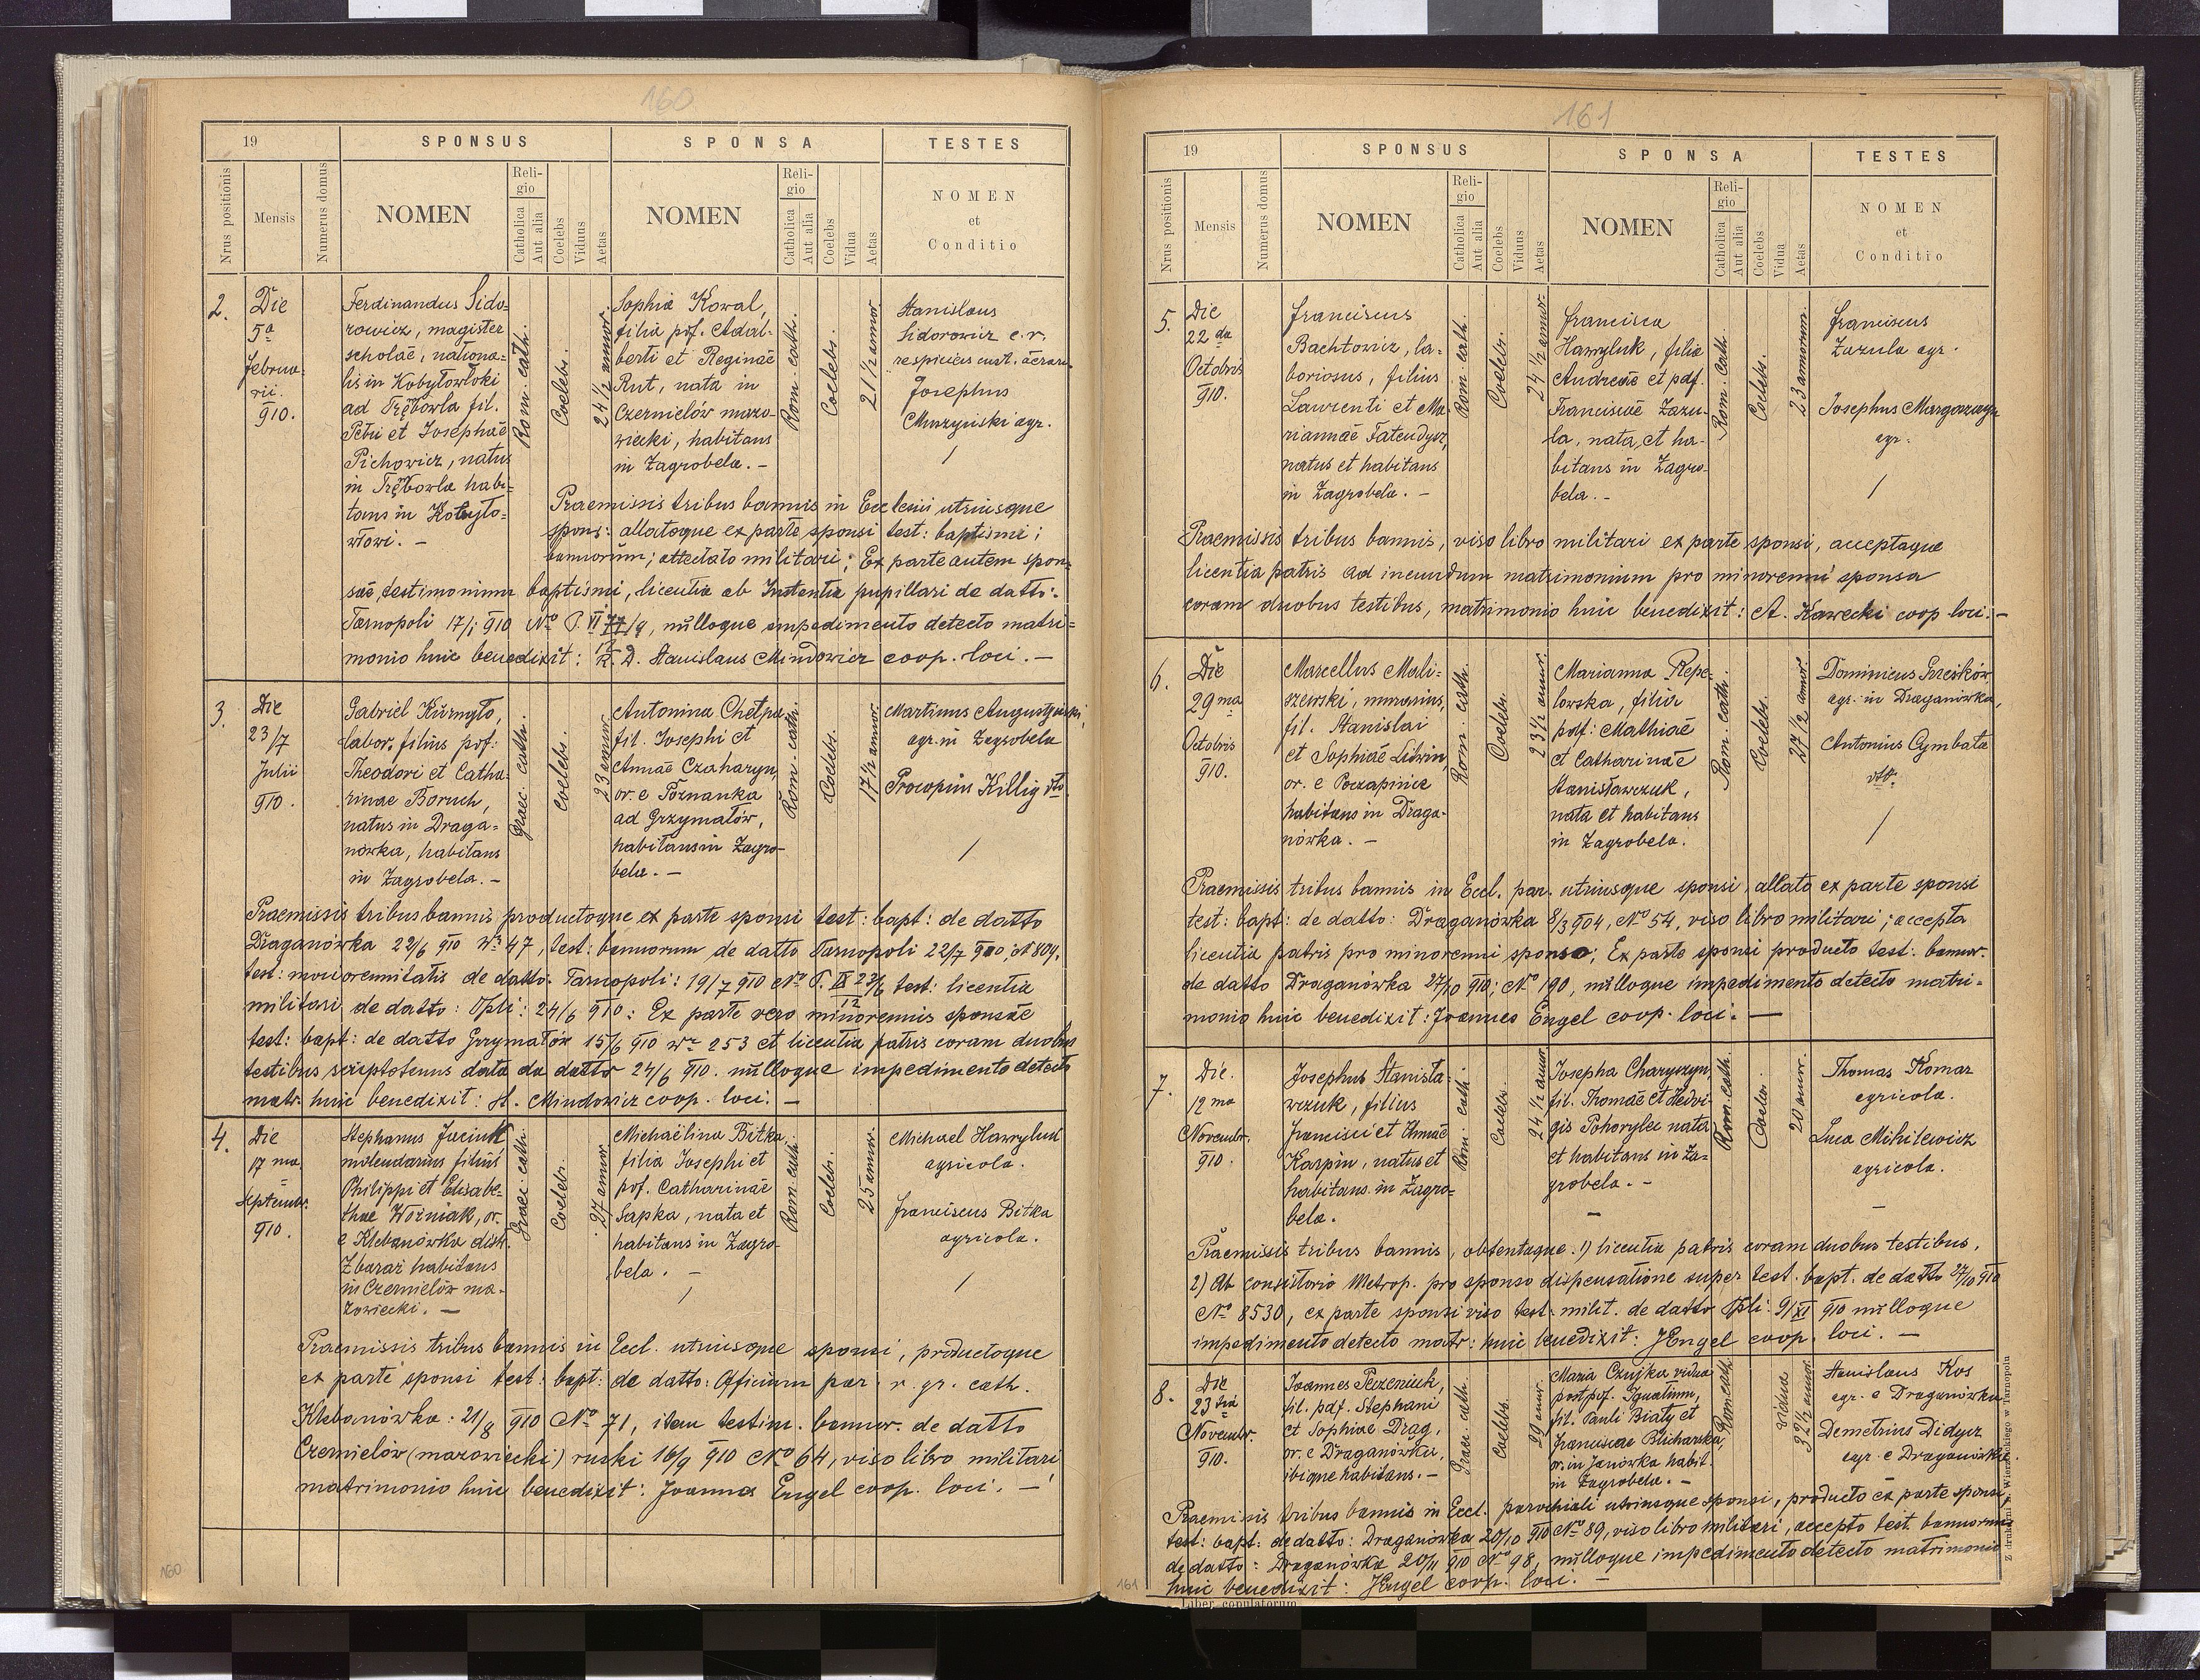 160
19
SPONSUS
SPONSA
TESTES
Nrus positionis
Mensis
Numerus domus
NOMEN
Religio
Catholica
Aut alia
Coelebs
Viduus
Aetas
NOMEN
Religio
Catholica
Aut alia
Coelebs
Vidua
Aetas
NOMEN
et
Conditio
2.
Die
5a
Februa-
rii.
910.
Ferdinandus Sido-
rowicz, magister
scholae, nationa-
lis in Kobyłowłoki
ad Trębowla fil.
Petri et Josephae
Pichowicz, natus
in Trębowla habi-
tans in Kobyło-
włoki. -
Rom. cath.
Coelebs.
24 1/2 annor.
Sophia Kowal,
filia pdf. Adal-
berti et Reginae
Rut, nata in
Czernielów mazo-
wiecki, habitans
in Zagrobela. -
Rom. cath.
Coelebs.
21 1/2 annor.
Stanislaus
Sidorowicz c. r.
respiciens
Josephus
Muszyński agr.
/
Praemissis tribus bannis in Ecclesii utriusque
spons: allatoque ex parte sponsi test: baptismi;
bannorum; attestato militari; Ex parte autem spon-
sae, testimonium baptismi, licentia ab Instantia pupillari de datto:
Tarnopoli 17/1 910 No P. VI 77/9, nulloque impedimento detecto matri-
monio huic benedixit: R. D. Stanislaus Mindowicz coop. loci. -
3.
Die
23/7
Julii
910.
Gabriel Kurnyło,
labor. filius pdf:
Theodori et Catha-
rinae Boruch,
natus in Draga-
nówka, habitans
in Zagrobela. -
Graec. cath.
Coelebs.
23 annor.
Antonina Chełpa
fil. Josephi et
Annae Czaharyn,
or. e Poznanka
ad Grzymałów,
habitans in Zagro-
bela. -
Rom. cath.
Coelebs.
17 1/2 annor.
Martinus Augustyński,
agr. in Zagrobela
Procopius Killig dto
/
Praemissis tribus bannis productoque ex parte sponsi test: bapt: de datto
Draganówka 22/6 910 No 47, test: bannorum de datto Tarnopoli 22/7 910, N 809.
test: maiorennitatis de datto: Tarnopoli: 19/7 910 No P. IX 23/6 test: licentia
12
militari de datto: Tpli: 24/6 910: Ex parte vero minorennis sponsae
test: bapt: de datto Grzymałów 15/6 910 No 253 et licentia patris coram duobus
testibus scriptotenus data de datto 24/6 910. nulloque impedimento detecto
matr. huic benedixit: St. Mindowicz coop. loci. -
4.
Die
17 ma
Septembr.
910.
Stephanus Jaciuk
molendarius filius
Philippi et Elisabe-
thae Woźniak, or.
e Klebanówka distr.
Zbaraż habitans
in Czernielów ma-
zowiecki. -
Graec. cath.
Coelebs.
27 annor.
Michaëlina Bitka,
filia Josephi et
pdf. Catharinae
Sapka, nata et
habitans in Zagro-
bela. -
/
Rom. cath.
Coelebs.
25 annor.
Michael Hawryluk
agricola.
Franciscus Bitka
agricola.
/
Praemissis tribus bannis in Eccl. utriusque sponsi, productoque
ex parte sponsi test: bapt: de datto: Officium par. r. gr. cath.
Klebanówka: 21/8 910 No 71, item testim. bannor. de datto
Czernielów (mazowiecki) ruski 16/9 910 No 64, viso libro militari
matrimonio huic benedixit: Joannes Engel coop. loci. -
160
161
19
SPONSUS
SPONSA
TESTES
Nrus positionis
Mensis
Numerus domus
NOMEN
Religio
Catholica
Aut alia
Coelebs
Viduus
Aetas
NOMEN
Religio
Catholica
Aut alia
Coelebs
Vidua
Aetas
NOMEN
et
Conditio
5.
Die
22 da
Octobris
910.
Franciscus
Bachtowicz, la-
boriosus, filius
Laurenti et Ma-
riannae Fatendysz,
natus et habitans
in Zagrobela. -
Rom. cath.
Coelebs.
24 1/2 annor.
Francisca
Hawryluk, filia
Andreae et pdf.
Franciscae Zazu-
la, nata et ha-
bitans in Zagro-
bela. -
Rom. cath.
Coelebs.
23 annorum.
Franciscus
Zazula agr.
Josephus
agr.
/
Praemissis tribus bannis, viso libro militari ex parte sponsi, acceptaque
licentia patris ad ineundum matrimonium pro minorenni sponsa
coram duobus testibus, matrimonio huic benedixit: A. Kawecki coop loci. -
6.
Die
29 ma
Octobris
910.
Marcellus Mali-
szewski, murarius,
fil. Stanislai
et Sophiae Litwin,
or. e Poczapińce
habitans in Draga-
nówka. -
Rom. cath.
Coelebs.
23 1/2 annor.
Marianna Repe-
lowska, filia
pdf: Mathiae
et Catharinae
Stanisławczuk,
nata et habitans
in Zagrobela.
Rom. cath.
Coelebs.
27 1/2 annor.
Dominicus Greśków
agr. in Draganówka,
Antonius Cymbała
dto.
/
Praemissis tribus bannis in Eccl. par. utriusque sponsi, allato ex parte sponsi
test: bapt: de datto: Draganówka 8/3 904, No 54, viso libro militari; accepta
licentia patris pro minorenni sponso; Ex parte sponsi producto test: bannor.
de datto Draganówka 27/10 910; No 190, nulloque impedimento detecto matri-
monio huic benedixit: Joannes Engel coop. loci. -
7.
Die.
12 ma
Novembr.
910.
Josephus Stanisła-
wczuk, filius
Francisci et Annae
Karpin, natus et
habitans in Zagro-
bela.
Rom. cath.
Coelebs.
24 1/2 annor.
Josepha Charyszyn,
fil. Thomae et Hedvi-
gis Pohorylec nata
et habitans in Za-
grobela. -
-
Rom. cath.
Coelebs.
20 annor.
Thomas Komar
agricola.
Luca Mihilewicz
agricola.
-
Praemissis tribus bannis, obtentaque. 1) licentia patris coram duobus testibus.
2) Ab consistorio Metrop. pro sponso dispensatione super test. bapt. de datto 27/10 910
No 8530, ex parte sponsi viso test: milit. de datto Tpli: 9/XI 910 nulloque
impedimento detecto matr: huic benedixit: JEngel coop. loci. -
8.
Die
23 tia
Novembr.
910.
Joannes Peczeniuk,
fil. pdf. Stephani
et Sophiae Drag,
or. e Draganówka,
ibique habitans. -
Graec. cath.
Coelebs.
29 annor.
Maria Czujka vidua
post pdf. Ignatium,
fil. Pauli Biały et
Franciscae Blicharska,
or. in Janówka habit.
in Zagrobela. -
Rom. cath.
Vidua
32 1/2 annor.
Stanislaus Kos
agr. e Draganówka
Demetrius Didycz
agr. e Draganówka.
Praemissis tribus bannis in Eccl. parochiali utriusque sponsi, producto ex parte sponsi,
test: bapt: de datto: Draganówka 20/10 910 No 89, viso libro militari, accepto test. bannorum
de datto: Draganówka 20/11 910 No 98, nulloque impedimento detecto matrimonio
huic benedixit: JEngel coop. loci. -
161
Liber copulatorum
Z drukarni Wierzbickiego w Tarnopolu